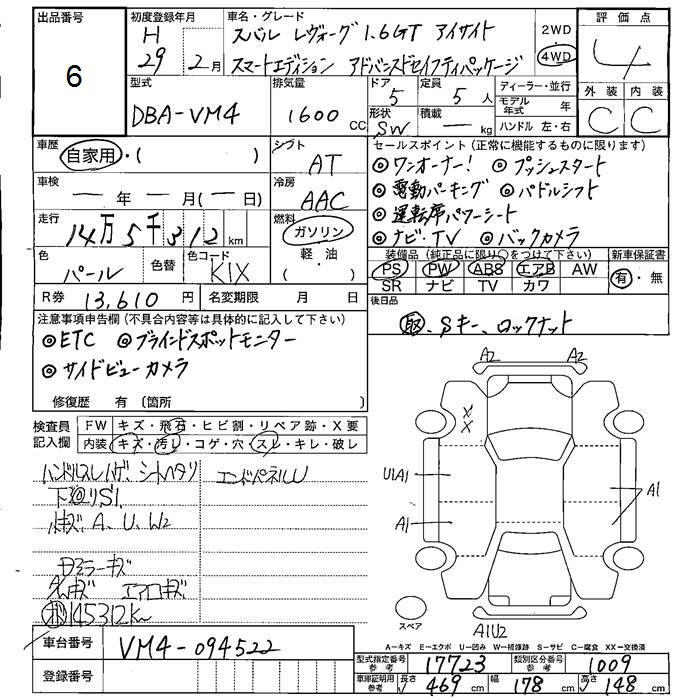 出品番号
6
初度登録年月
H
29 2月
車名・グレード
スバル レヴォーグ 1.6GT アイサイト
スマートエディション アドバンスドセイフティパッケージ
2WD
4WD
評価点
4
外装 内装
C C
型式
DBA-VM4
排気量
1600 cc
ドア
5
定員
5人
形状
SW
積載
— kg
ディーラー・並行
モデル年式 年
ハンドル 左・右
車歴
自家用・( )
シフト
AT
車検
— 年 — 月(— 日)
冷房
AAC
走行
14万5千312 km
燃料
ガソリン
軽・油
( )
色
パール
色替
色コード
K1X
R券 13,610 円
名変期限 月 日
セールスポイント(正常に機能するものに限ります)
◎ワンオーナー! ◎プッシュスタート
◎電動パーキング ◎パドルシフト
◎運転席パワーシート
◎ナビ・TV ◎バックカメラ
装備品(純正品に限り○をつけて下さい)
PS PW ABS エアB AW
SR ナビ TV カワ
新車保証書
有・無
後日品
取、Sキー、ロックナット
注意事項申告欄(不具合内容等は具体的に記入して下さい)
◎ETC ◎ブラインドスポットモニター
◎サイドビューカメラ
修復歴 有(箇所 )
検査員
記入欄
FW キズ・飛石・ヒビ割・リペア跡・X要
内装 キズ・汚レ・コゲ・穴・スレ・キレ・破レ
ハンドルスレハゲ、シートヘタリ
エンドパネルU
下廻りS1
A、U、W2
ドアミラーキズ
エアロキズ
145312Km
A2 A2
X
X
U1A1
A1
A1
A1U2
スペア
A—キズ E—エクボ U—凹み W—補修跡 S—サビ C—腐食 XX—交換済
車台番号
VM4-094522
登録番号
型式指定番号
参考
17723
類別区分番号
参考
1009
車庫証明用
参考
長さ 469 cm
幅 178 cm
高さ 148 cm